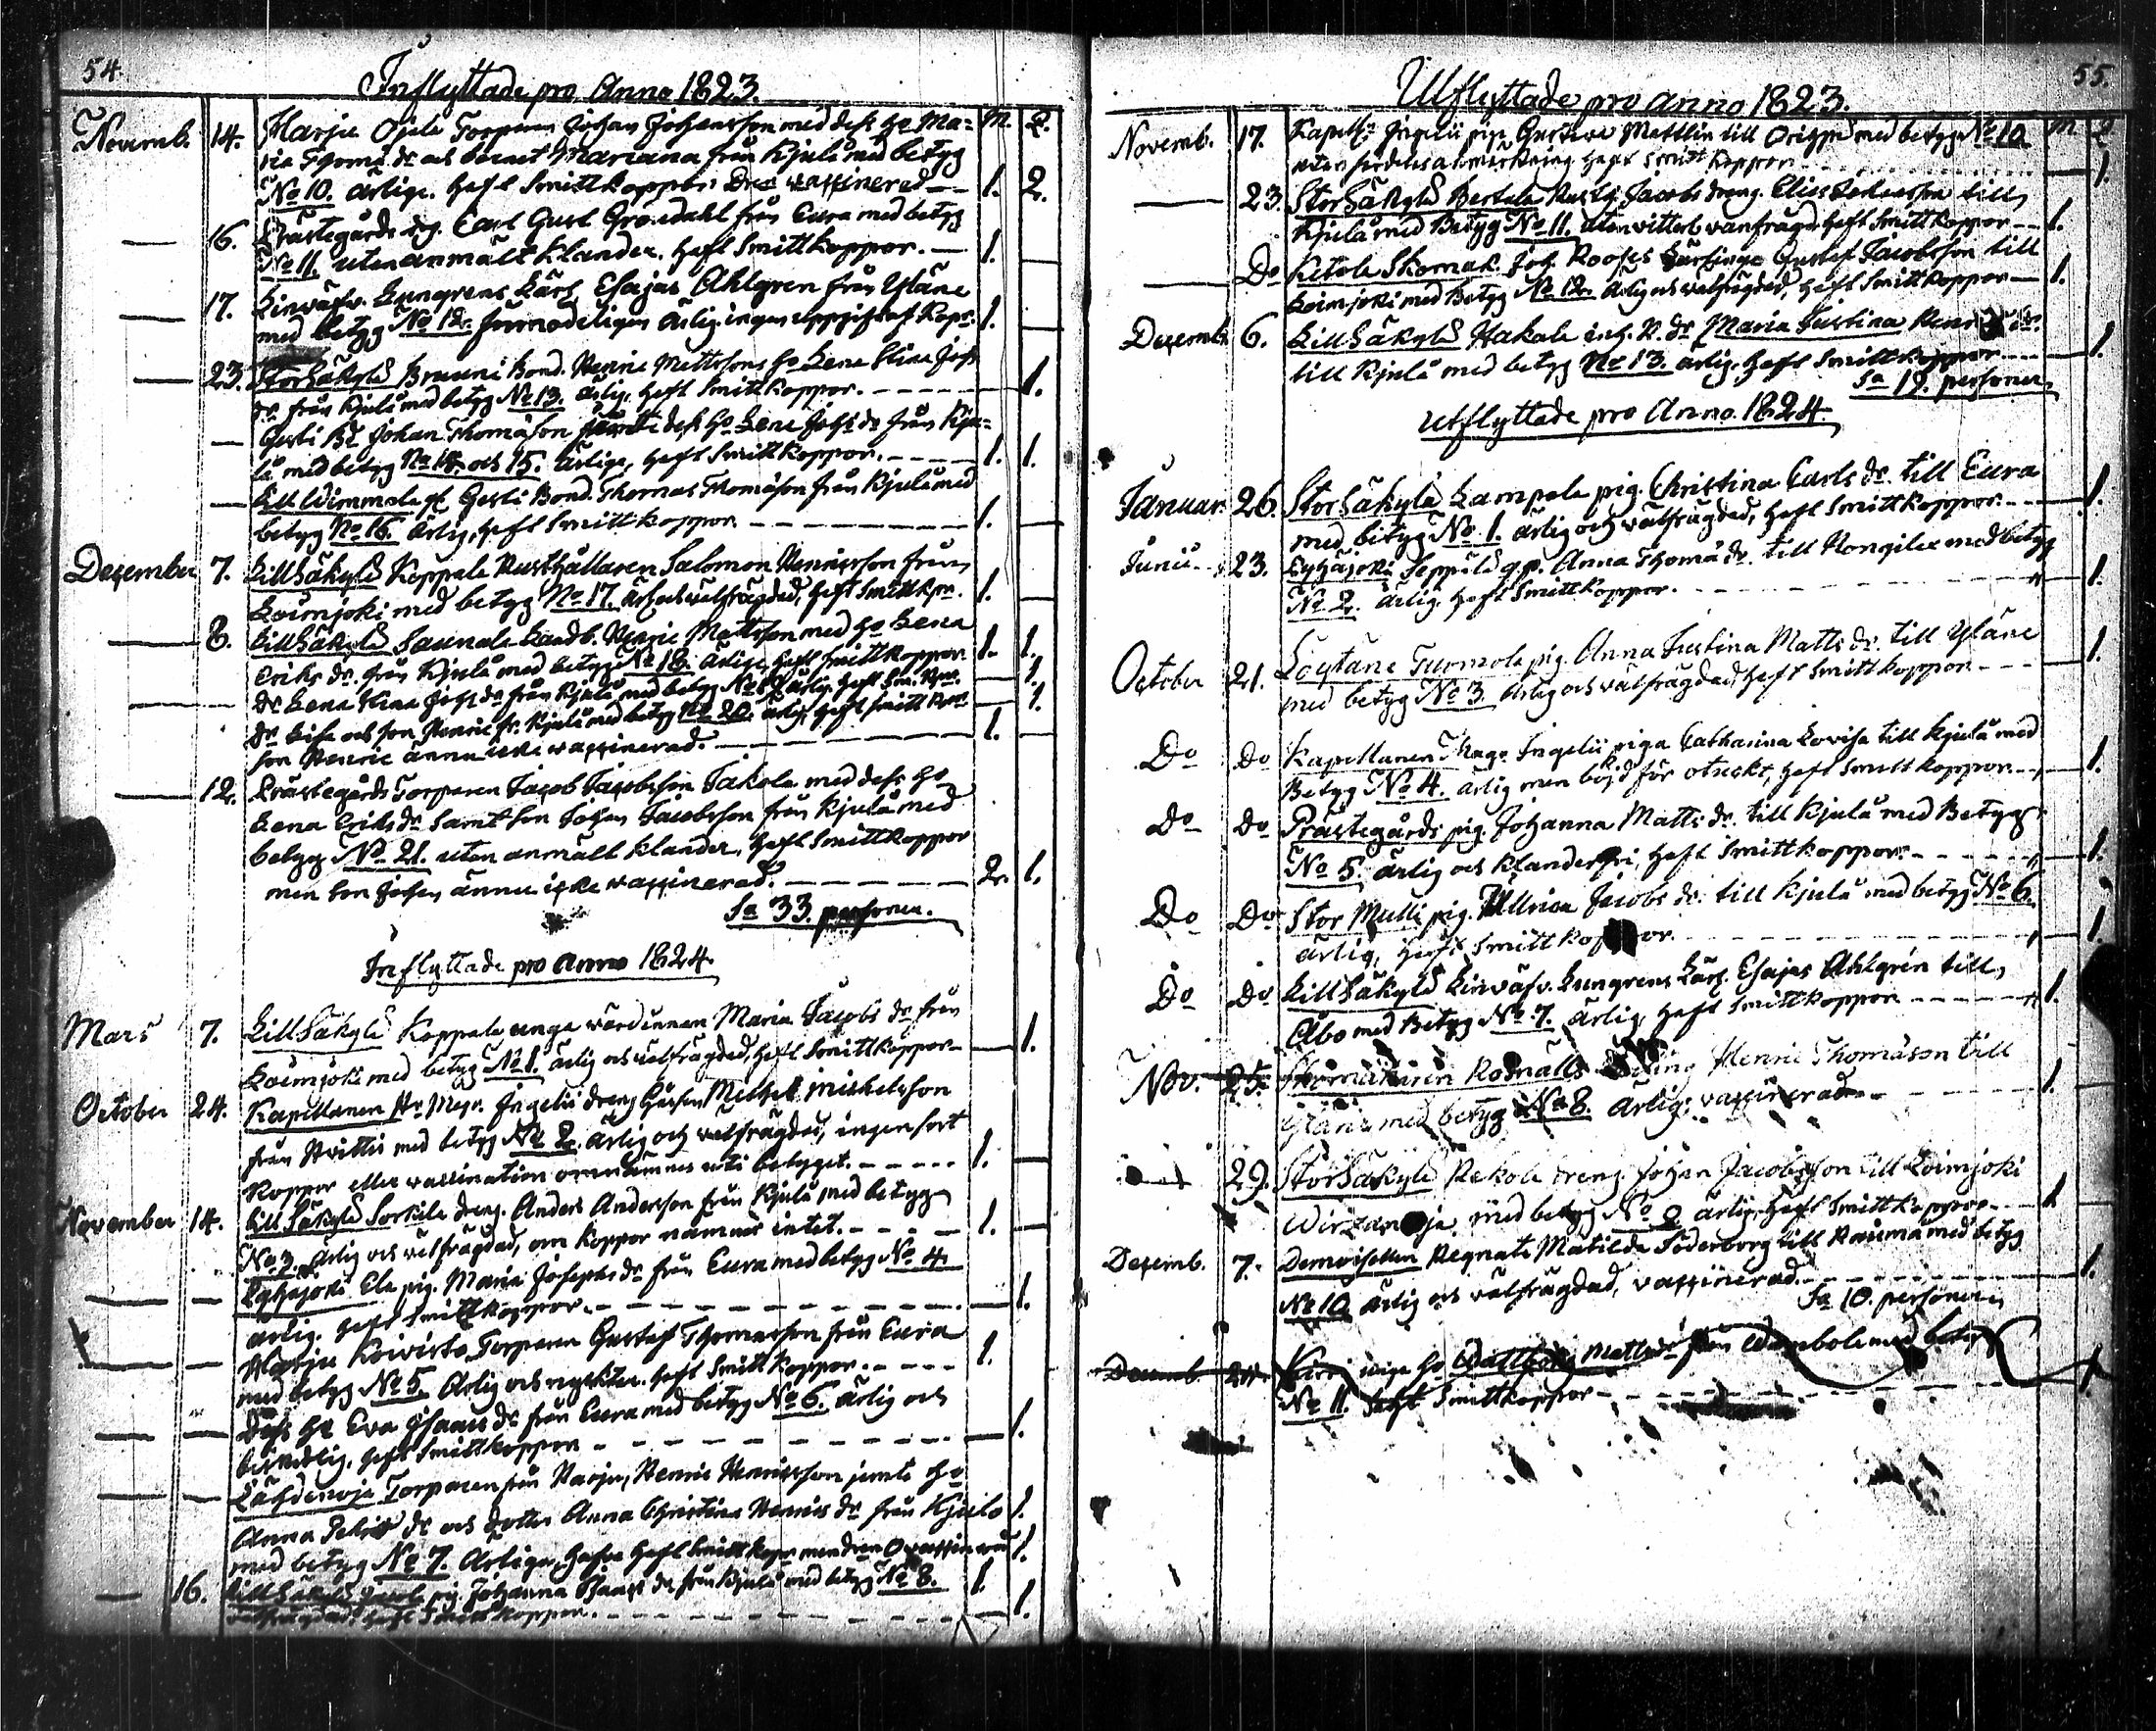 54.
Inflyttade pro Anno 1823.
M. Q.
Novemb. 14. Harju Ojala Torparen Johan Johansson med dess ho Ma=
ria Thomæ dr och barnet Mariana från Kjulo med betyg
No 10. ärlige. haft Smittkoppor vaccinerad 1. 2.
16. Prästegårds dg. Carl Gust. Grönedahl från Eura med betyg
No 11. utan anmält klander. haft Smittkoppor. 1.
17. Linväfv. Ljungrens Lärl. Esajas Ahlgren från Yläne
med betyg No 12. förmodeligen ärlig, ingen uppgift af Kopr. 1.
23. StorSäkylä Bruuni Bond. Henric Mattssons ho Lena Stina Johs
dr. från Kjulo med betyg No 13. ärlig, haft Smittkoppor. 1.
Gesti Bd Johan Thomasson jemte dess ho Lena Johs dr från Kju=
lo med betyg No 14. och 15. ärlige, haft Smittkoppor. 1. 1.
Gesti Bond. Thomas Thomasson från Kjulo med
betyg No 16. ärlig, haft Smittkoppor 1.
December 7. LillSäkylä Koppala Rusthållaren Salomon Henricsson från
Loimjoki med betyg No 17. ärl. och välfrägdad, haft Smittkpr. 1.
8. LillSäkylä Saunala Landb. Henric Mattsson med ho Lena
Eriks dr. från Kjulo med betyg No 18. ärlige, haft Smittkoppor 1. 1.
Do Lena Stina Johs dr från Kjulo med betyg No 19 ärlig, haft Sm. Kpr. 1.
Do Lisa och son Henric fr. Kjulo med betyg No 20. ärlig, haft Smitt Kopr 1.
son Henric ännu icke vaccinerad. 1.
12. Prästegårds Torparen Jacob Jacobsson Jakola med dess ho
Lena Eriks dr samt son Johan Jacobsson från Kjulo med
betyg No 21. utan anmält klander, haft Smittkoppor
men son Johan ännu icke vaccinerad. 2. 1.
Sa 33 personer.
Inflyttade pro Anno 1824.
Mars 7. LillSäkylä Koppala unga värdinnan Maria Jacobs dr från
Loimjoki med betyg No 1. ärlig och välfrägdad, haft Smittkoppor 1.
October 24. Kapellanen Hr Magr. Ingelii dreng Michel Michelsson
från Hvittis med betyg No 2. ärlig och välfrägdad, ingen fort
Koppor eller vaccination omnämnes uti betyget. 1.
November 14. LillSäkylä Sorkila dreng. Anders Andersson från Kjulo med betyg
No 3. ärlig och välfrägdad, om koppor nämnes intet. 1.
Pyhäjoki Ela pig. Maria Josephs dr från Eura med betyg No 4.
ärlig. haft Smittkoppor. 1.
Harju Koivisto Torparen Gustaf Thomasson från Eura
med betyg No 5. ärlig och nyckter. haft Smittkoppor. 1.
Dess ho Eva Isaacs dr från Eura med betyg No 6. ärlig och
haft Smittkoppor 1.
Lähdenoja Torparen från Harju, Henric Henricsson jemte ho
Anna dr och dotter Anna Christina Henrics dr från Kjulo 1.
med betyg No 7. ärlige, hafva haft Smittkopr. 1.
16. LillSäkylä pig Johanna Isaacs dr från Kjulo med betyg No 8. 1.
välfrägdad, haft Smittkoppor. 1.
55.
Utflyttade pro anno 1823.
M. Q.
Novemb. 17. Kapells Ingelii piga Gustava Mattlin till Oripää med betyg No 10
utan haft Smittkoppor 1.
23. StorSäkylä Bertala Rusth. Jacobs dreng. Elias till
Kjulo med Betyg No 11. utan haft Smittkoppor 1.
Do Ketola Skomak. Joh. Rooses Lärlinge Gustaf Jacobsson till
Loimjoki med Betyg No 12. ärlig och välfrägdad, haft Smittkoppor 1.
Decemb. 6. LillSäkylä Hakala inh. Maria Justina
till Kjulo med betyg No 13. ärlig, haft Smittkoppor 1.
Sa 19. personer.
Utflyttade pro Anno 1824.
Januar. 26. StorSäkylä Lampola pig. Christina Carls dr till Eura
med betyg No 1. ärlig och välfrägdad, haft Smittkoppor. 1.
Junii 23. Pyhäjoki Seppälä pig. Anna Thomæ dr. till Hongilax med betyg
No 2. ärlig, haft Smittkoppor. 1.
October 21. Löytäne Tuomola pig. Anna Justina Matts dr. till Yläne
med betyg No 3. ärlig och välfrägdad, haft Smittkoppor 1.
Do Do Kapellanen Magr. Ingelii piga Catharina Lovisa till Kjulo med
Betyg No 4. ärlig men böjd för otuckt, haft Smittkoppor 1.
Do Do Prästegårds pig. Johanna Matts dr. till Kjulo med Betyg
No 5. ärlig och klanderfri, haft Smittkoppor. 1.
Do Do Stor Mulli pig. Ullrica Jacobs dr. till Kjulo med betyg No 6.
ärlig, haft Smittkoppor. 1.
Do Do LillSäkylä Linväfv. Ljungrens Lärl. Esajas Ahlgrén till
Åbo med Betyg No 7. ärlig, haft Smittkoppor 1.
Nov. 25. Skomakaren Lärling Henric Thomasson till
Yläne med betyg No 8. ärlig, vaccinerad. 1.
29. StorSäkylä Rekola dreng Johan Jacobsson till Loimjoki
med betyg No 9 ärlig, haft Smittkoppor 1.
Decemb. 7. Demoisellen Regnata Matilda Söderborg till Rauma med betyg
No 10 ärlig och välfrägdad, vaccinerad. 1.
Sa 10. personer
Decemb. 24. unga ho Matts dr från med betyg
No 11. haft Smittkoppor 1.